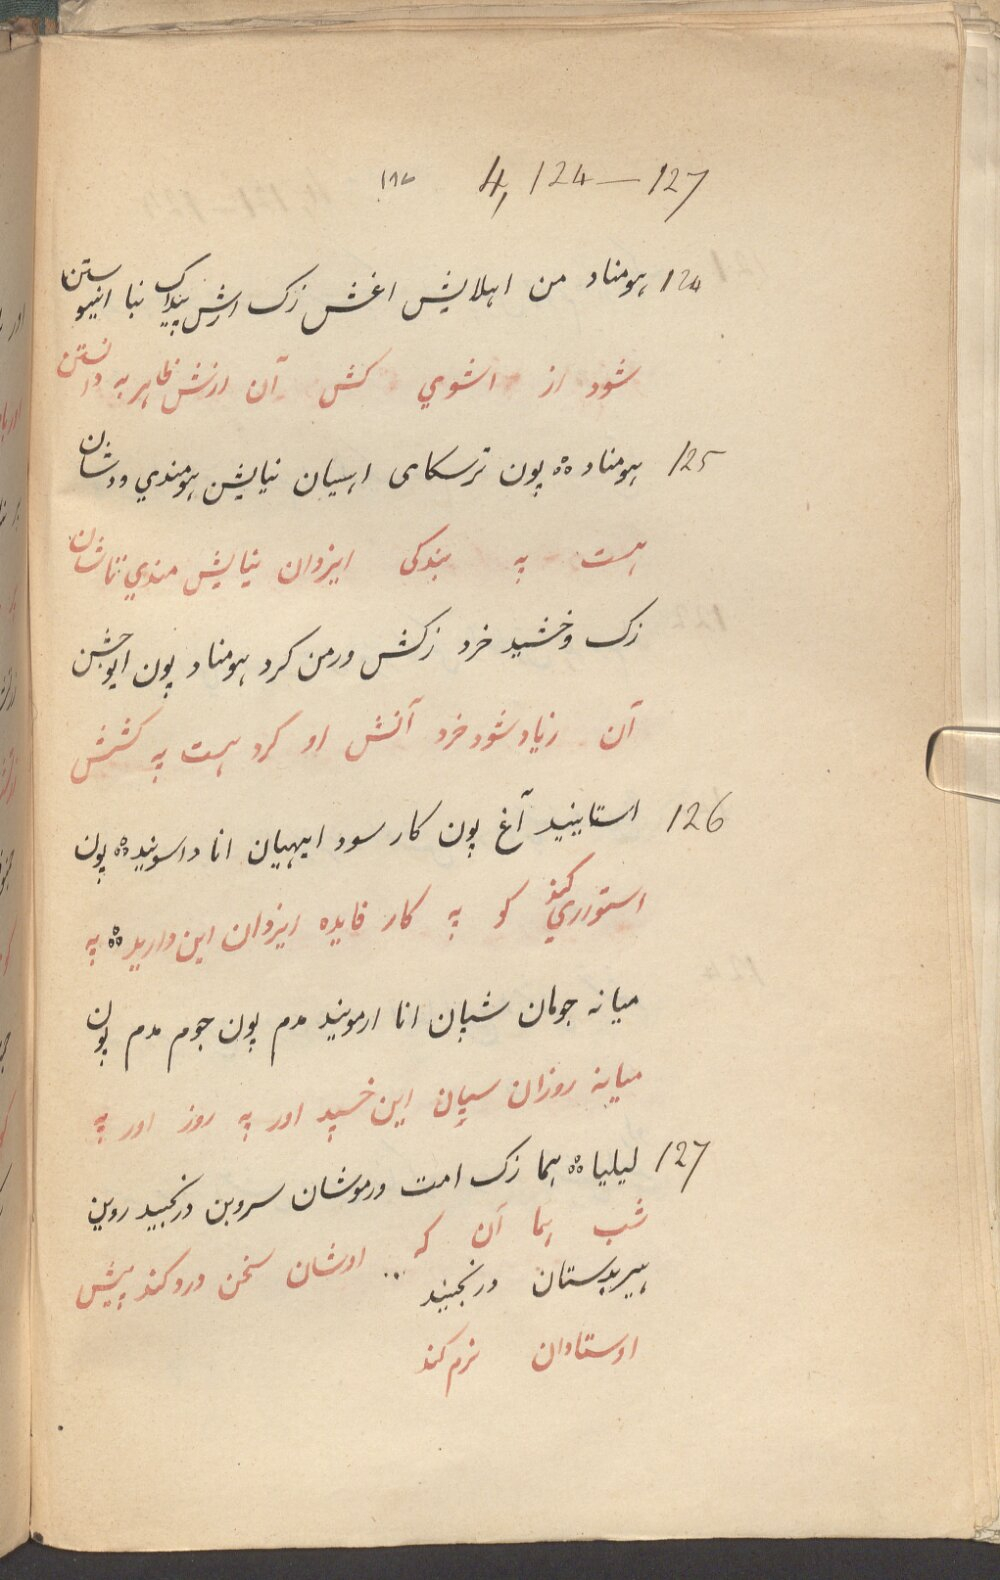 4, 124—127 ۱۸۷
124 هومناد من اهلایش اغش زک ارش پیداک نبا انیوستن
شود از اشوي کش آن ارزش ظاهر به دانستن
125 هومناد ؞ پون ترسکای اهیان نیایش هومندي ودشان
هست په بندکی ایزوان نیایش مندي تاشان
زک وخشید خرد زکش ورمن کرد هومناد پون ایوجشن
آن زیاد شود خرد آنش او کرد هست په کشش
126 استایند آغ پون کار سود ایهیان انا داسوند ؞ پون
استواري کند کو په کار فایده ایزوان این دارید ؞ په
میانه جومان شپان انا ارموند مدم پون جوم مدم پون
میانه روزان سپان این خسپد اور په روز اور په
127 لیلیا ؞ هما زک امت ورموشان سروبن درنجید روین
شب هما آن که ... اوشان سخن درو کند پیش
هیربدستان درنجیند
اوستادان نرم کند